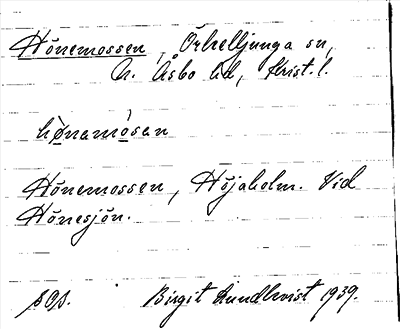 Hönemossen, Örkelljunga sn,
N. Åsbo hd, Krist. l.
hønamosan
Hönemossen, Höjaholm. Vid
Hönesjön.
sος.
Birgit Lundkvist 1939.